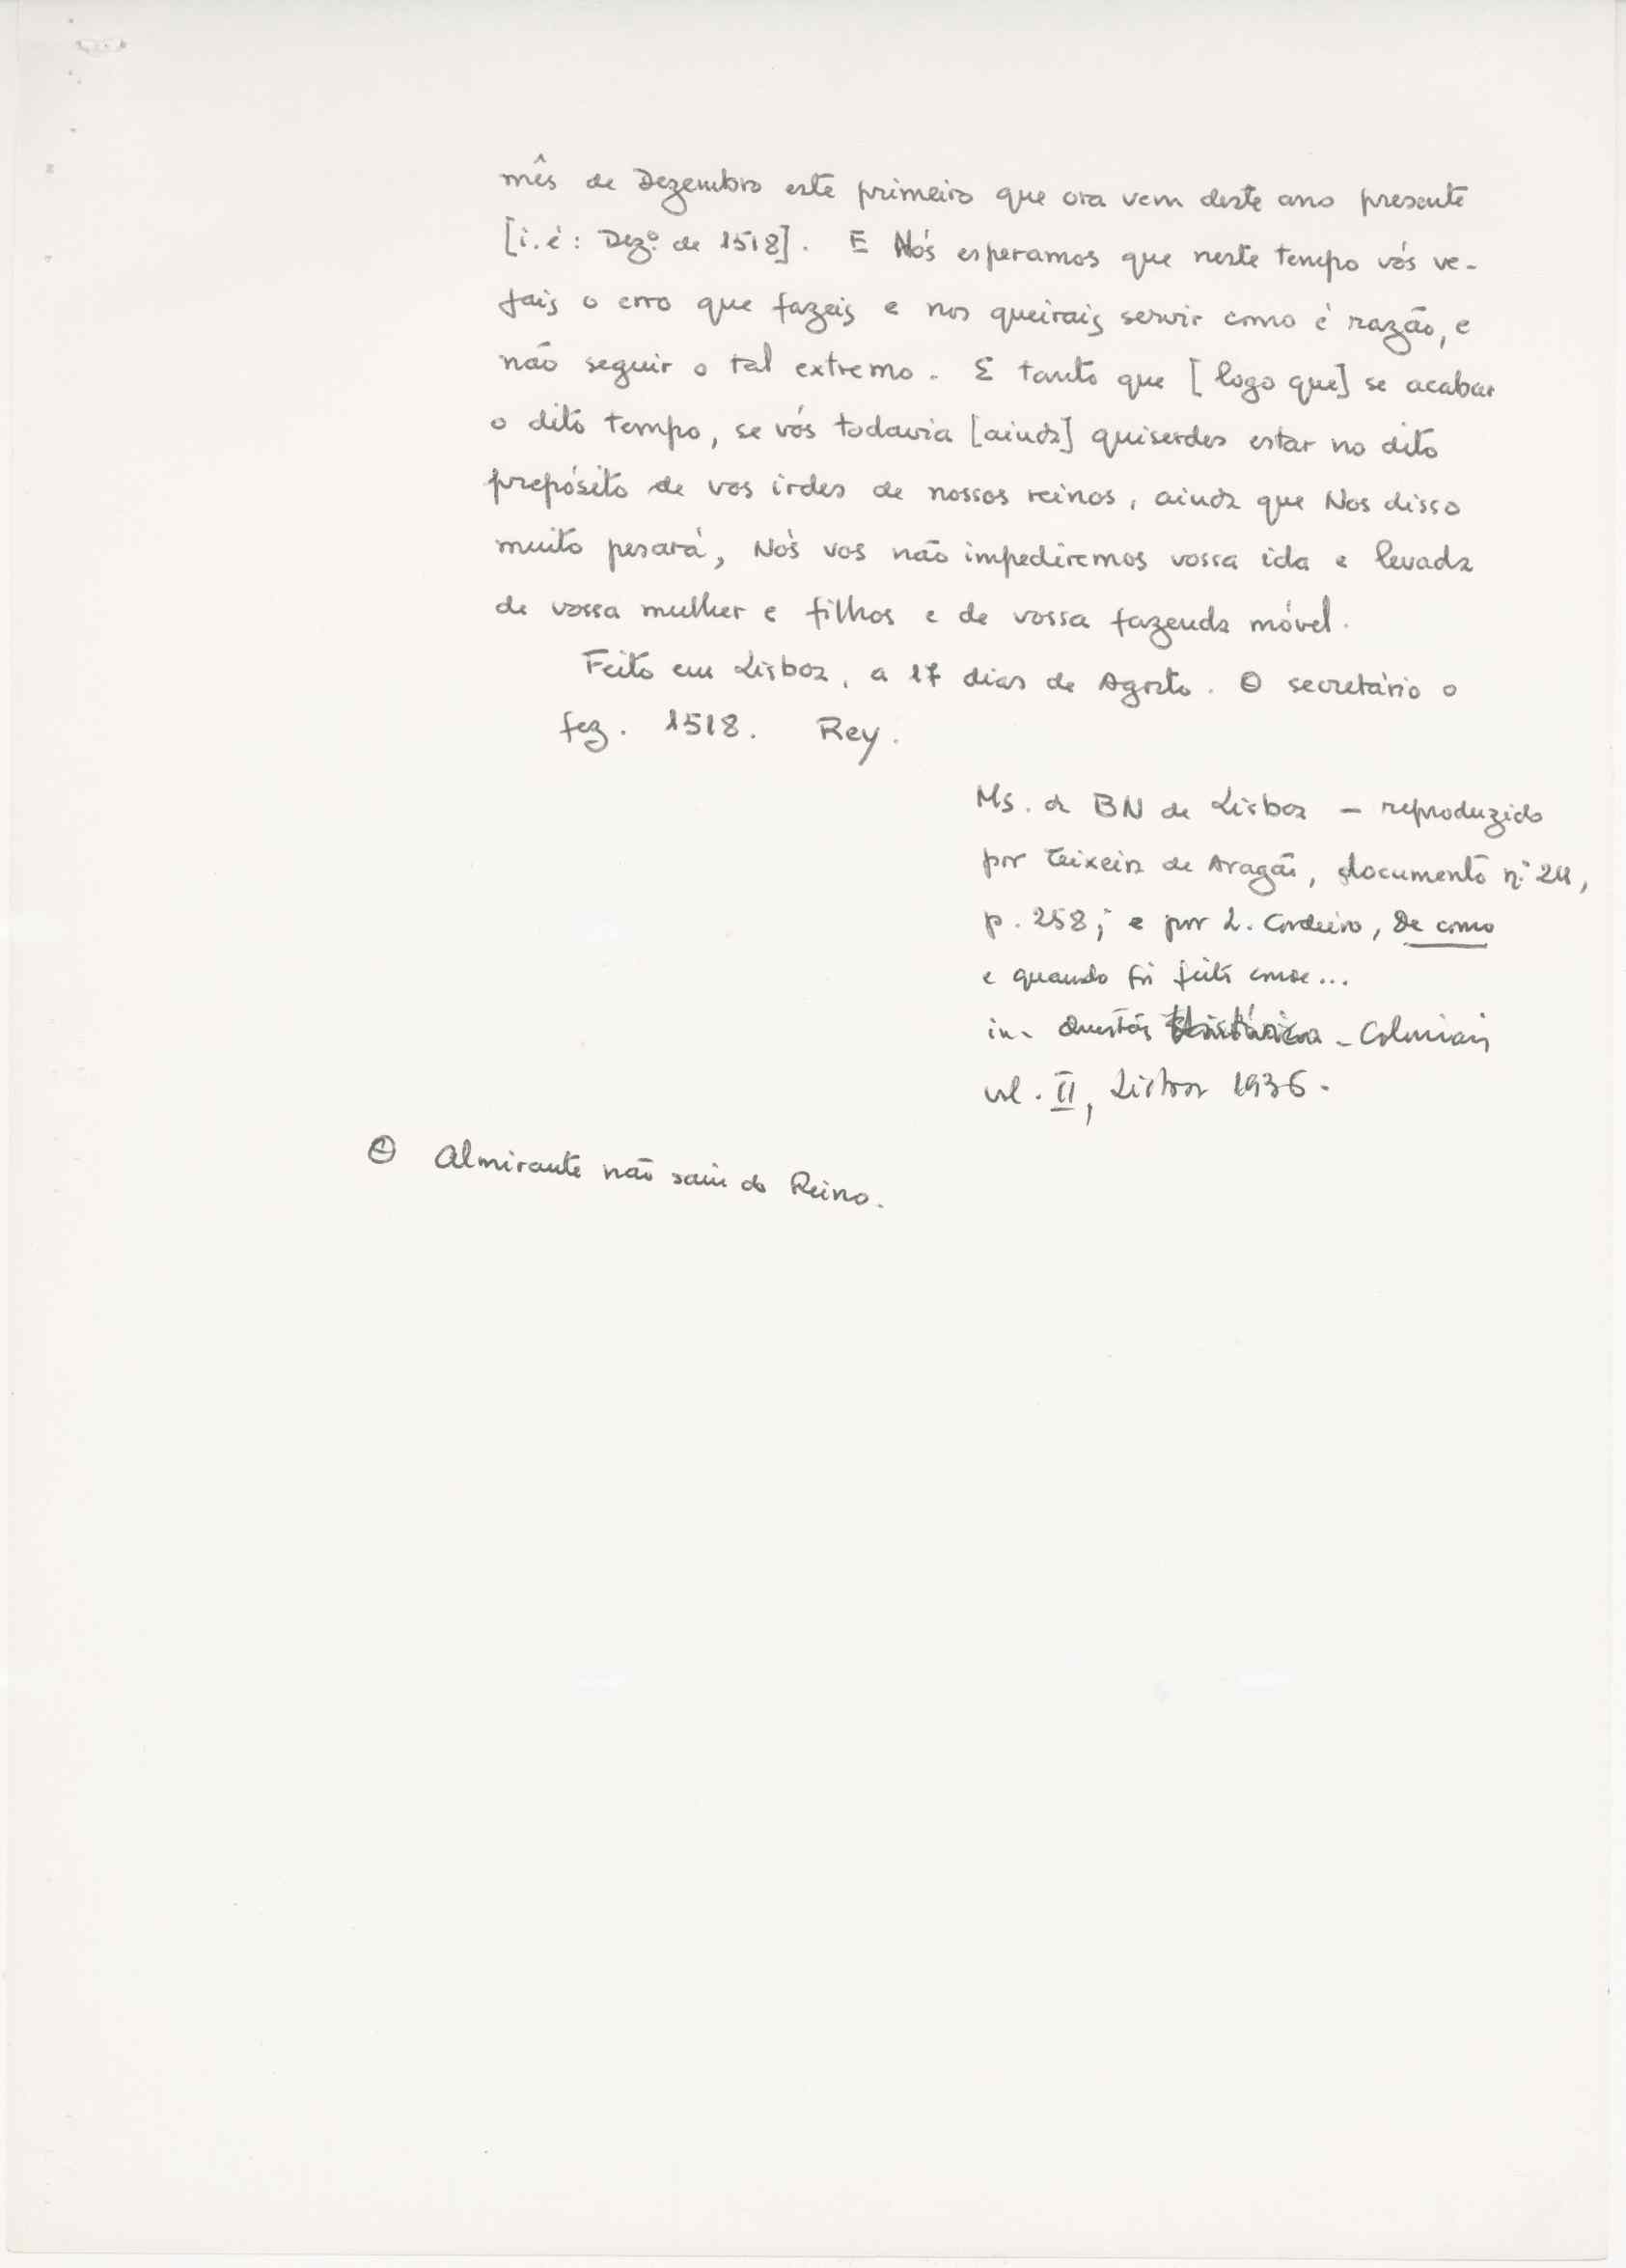 mês de Dezembro este primeiro que ora vem deste ano presente
[i. é: Dezº. de 1518]. E Nós esperamos que neste tempo vós ve-
jais o erro que fazeis e nos queirais servir como é razão, e
não seguir o tal extremo. E tanto que [logo que] se acabar
o dito tempo, se vós todavia [ainda] quiserdes estar no dito
prepósito de vos irdes de nossos reinos, ainda que Nos disso
muito pesará, Nós vos não impediremos vossa ida e levada
de vossa mulher e filhos e de vossa fazenda móvel.
Feito em Lisboa, a 17 dias de Agosto. O secretário o
fez. 1518. Rey.
Ms. da BN de Lisboa — reproduzido
por Teixeira de Aragão, documento n.º 24,
p. 258; e por L. Cordeiro, De como
e quando foi feito conde...
in- Questões Históricas - Coloniais
vol. II, Lisboa 1936.
O Almirante não saiu do Reino.